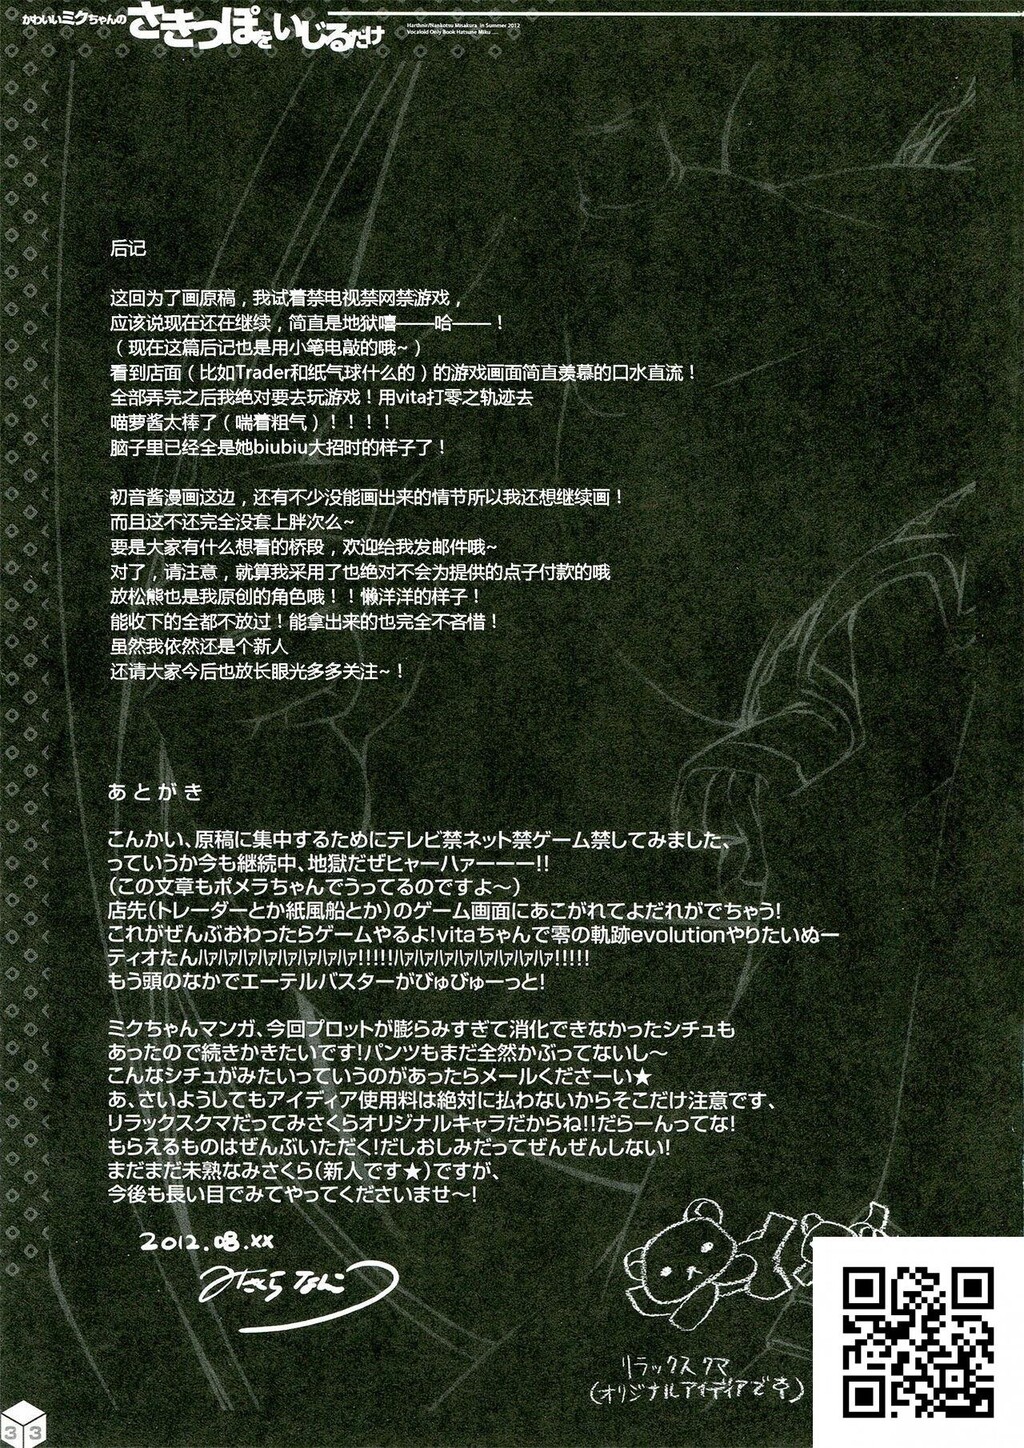 かわいいミクちゃんの
さきっぽをいじるだけ
Harthnir/Nankotsu Misakura in Summer 2012
Vocaloid Only Book Hatsune Miku ....
后记
这回为了画原稿，我试着禁电视禁网禁游戏，
应该说现在还在继续，简直是地狱嘻——哈——！
（现在这篇后记也是用小笔电敲的哦~）
看到店面（比如Trader和纸气球什么的）的游戏画面简直羡慕的口水直流！
全部弄完之后我绝对要去玩游戏！用vita打零之轨迹去
喵萝酱太棒了（喘着粗气）！！！！
脑子里已经全是她biubiu大招时的样子了！
初音酱漫画这边，还有不少没能画出来的情节所以我还想继续画！
而且这不还完全没套上胖次么~
要是大家有什么想看的桥段，欢迎给我发邮件哦~
对了，请注意，就算我采用了也绝对不会为提供的点子付款的哦
放松熊也是我原创的角色哦！！懒洋洋的样子！
能收下的全都不放过！能拿出来的也完全不吝惜！
虽然我依然还是个新人
还请大家今后也放长眼光多多关注~！
あとがき
こんかい、原稿に集中するためにテレビ禁ネット禁ゲーム禁してみました、
っていうか今も継続中、地獄だぜヒャーハァーーー!!
(この文章もポメラちゃんでうってるのですよ～)
店先(トレーダーとか紙風船とか)のゲーム画面にあこがれてよだれがでちゃう!
これがぜんぶおわったらゲームやるよ!vitaちゃんで零の軌跡evolutionやりたいぬー
ティオたんﾊｧﾊｧﾊｧﾊｧﾊｧﾊｧﾊｧﾊｧ!!!!!ﾊｧﾊｧﾊｧﾊｧﾊｧﾊｧﾊｧﾊｧ!!!!!
もう頭のなかでエーテルバスターがびゅびゅーっと!
ミクちゃんマンガ、今回プロットが膨らみすぎて消化できなかったシチュも
あったので続きかきたいです!パンツもまだ全然かぶってないし～
こんなシチュがみたいっていうのがあったらメールくださーい★
あ、さいようしてもアイディア使用料は絶対に払わないからそこだけ注意です、
リラックスクマだってみさくらオリジナルキャラだからね!!だらーんってな!
もらえるものはぜんぶいただく!だしおしみだってぜんぜんしない!
まだまだ未熟なみさくら(新人です★)ですが、
今後も長い目でみてやってくださいませ～!
2012.08.xx
みさくらなんこつ
リラックスクマ
(オリジナルアイディアです)
33